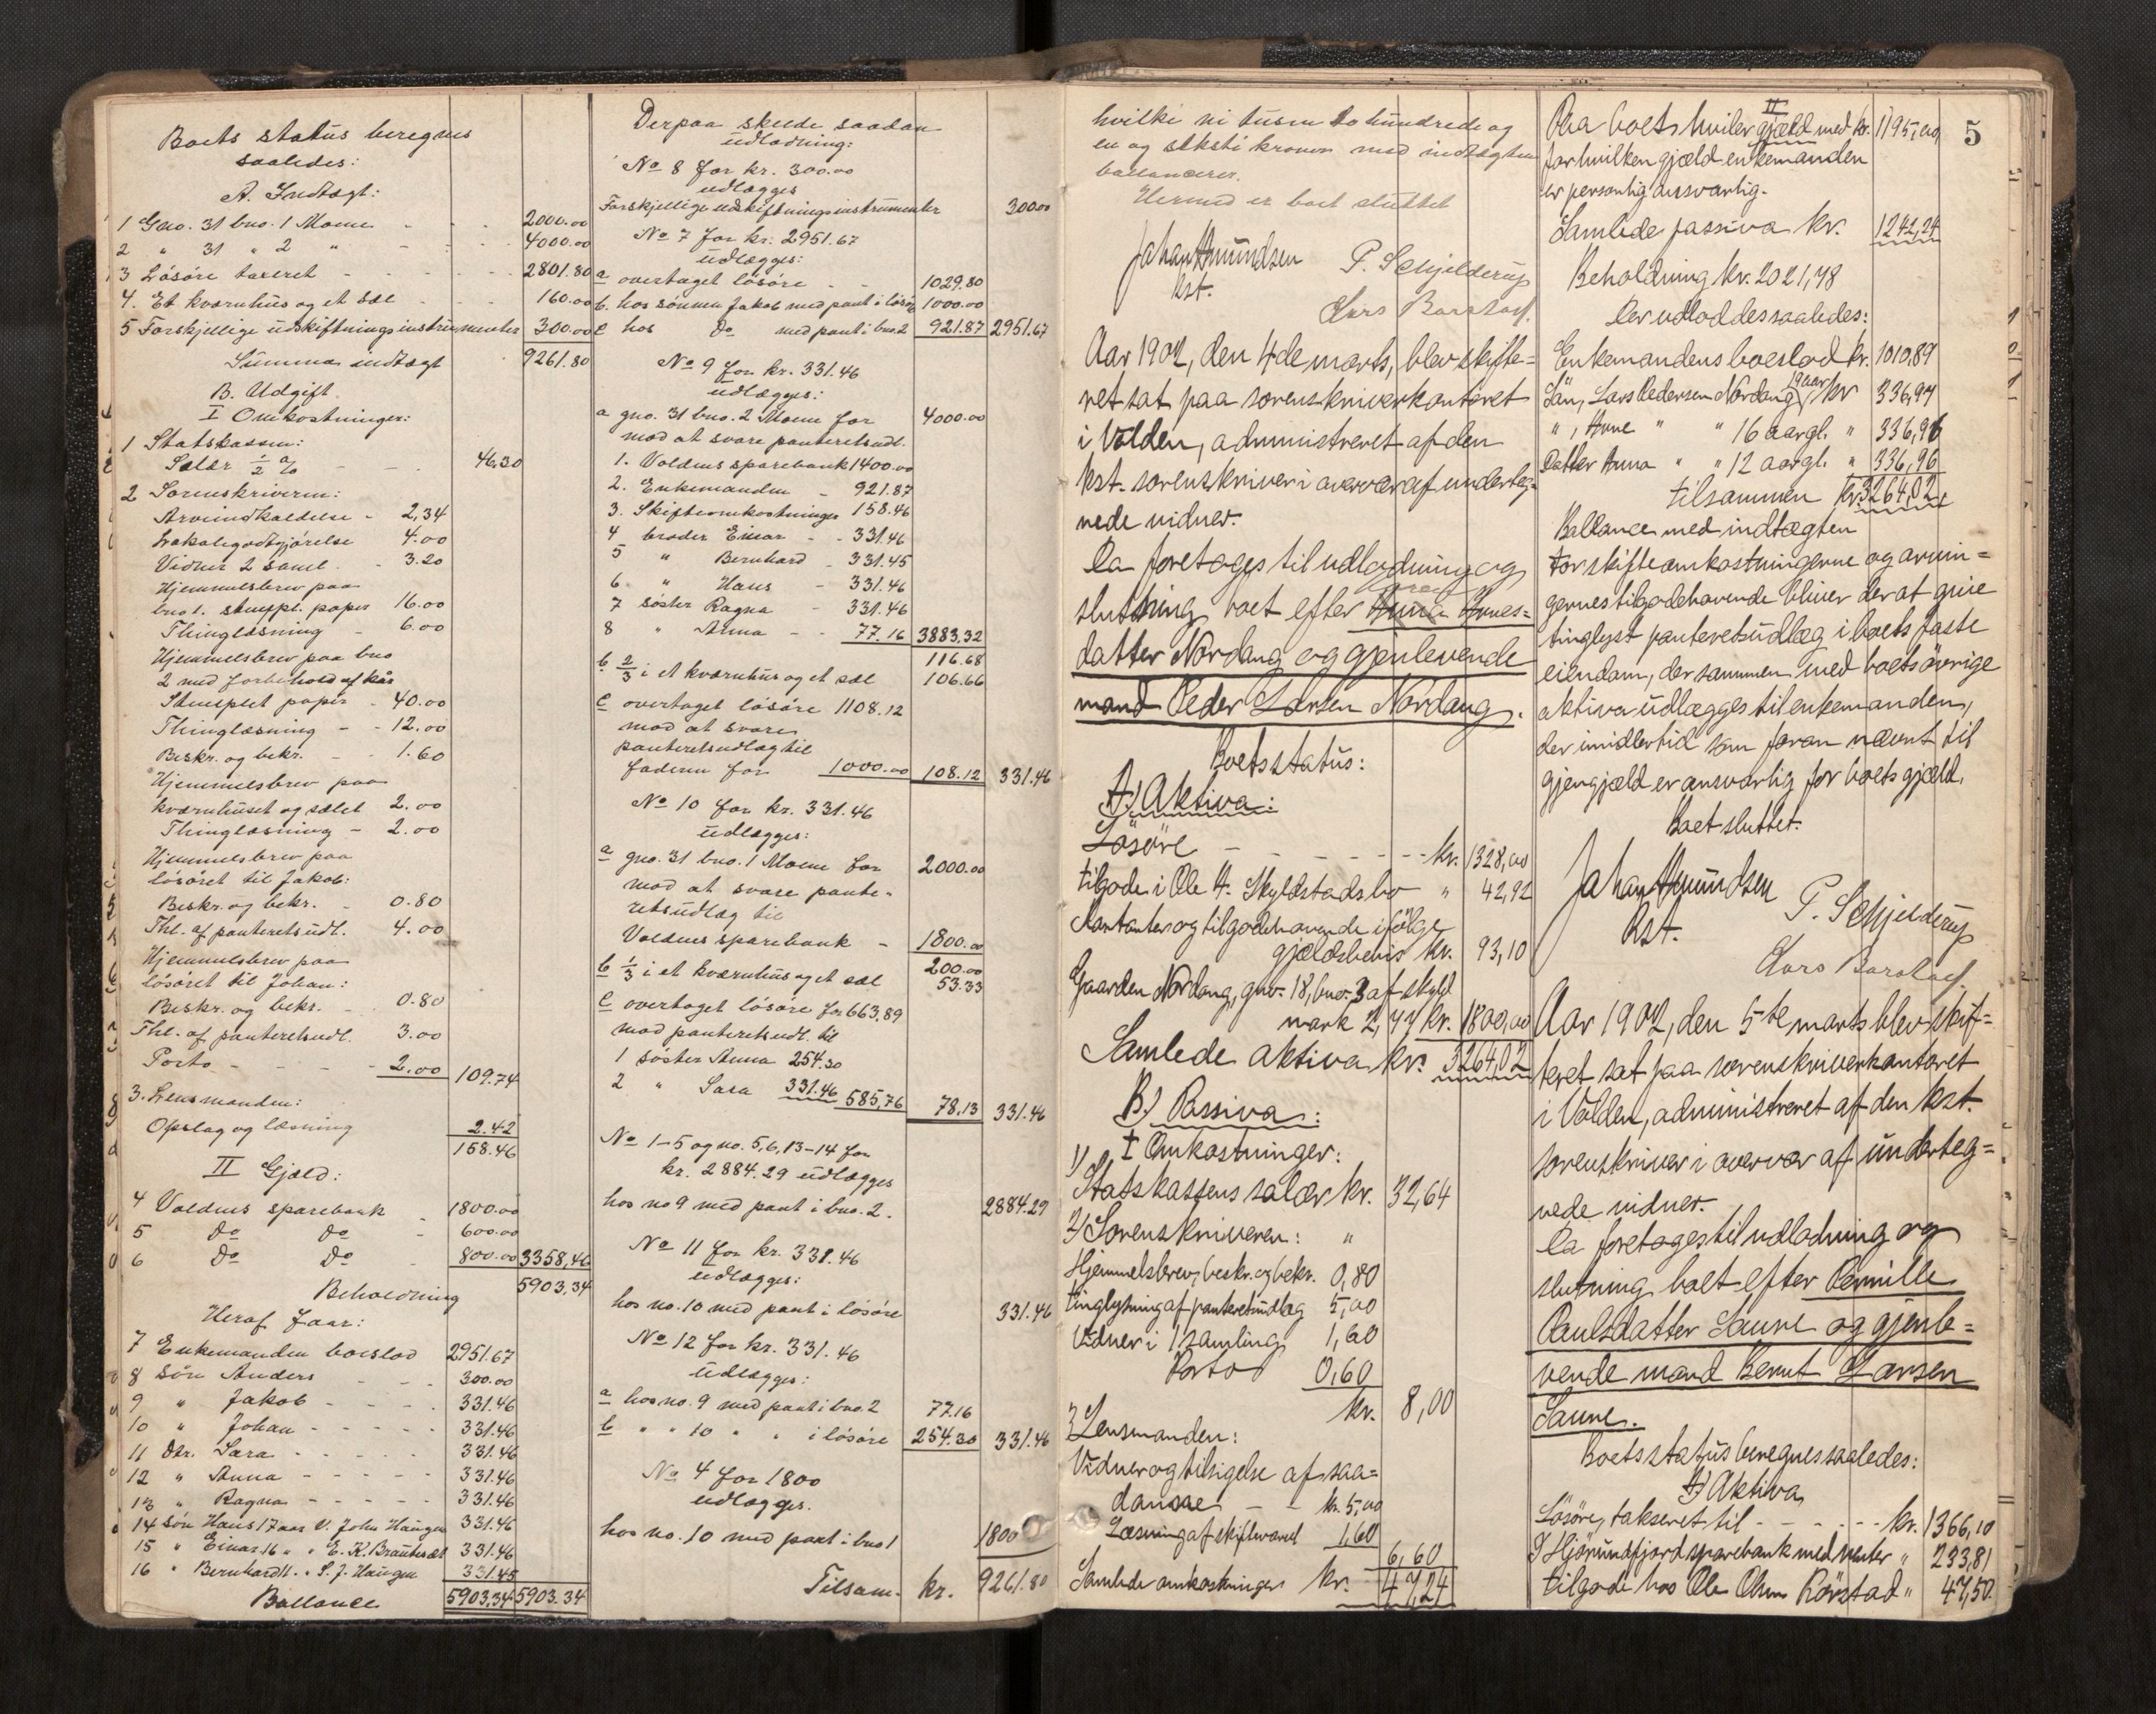 Boets status beregnes
saaledes:
A. Indtægt:
1 Gno. 31 bno. 1 Moene - - 2000.00
2 " 31 " 2 " - - - 4000.00
3 Løsøre taxeret - - - - 2801.80
4. Et kværnhus og et sæl - - - 160.00
5 Forskjellige udskiftningsinstrumenter 300.00
Summa indtægt 9261.80
B. Udgift
I Omkostninger:
1 Statskassen:
Salær ½ % - - - 46.30
2 Sorenskriveren:
Arveindkaldelse - 2,34
Lokalegodtgjørelse 4.00
Vidner 2 saml. - 3.20
Hjemmelsbrev paa
bno 1. stempl. papir 16.00
Thinglæsning - 6.00
Hjemmelsbrev paa bno
2 med forbehold af kår
Stemplet papir - 40.00
Thinglæsning - - 12.00
Beskr. og bekr. - 1.60
Hjemmelsbrev paa
kværnhuset og sælet 2.00
Thinglæsning - 2.00
Hjemmelsbrev paa
løsøret til Jakob:
Beskr. og bekr. - 0.80
Thl. af panteretsudl. 4.00
Hjemmelsbrev paa
løsøret til Johan:
Beskr. og bekr. - 0.80
Thl. af panteretsudl. 3.00
Porto - - - - 2.00 109.74
3. Lensmanden:
Opslag og læsning 2.42
158.46
II Gjæld:
4 Voldens sparebank - 1800.00
5 do do - 600.00
6 do do 800.00 3358,46
Beholdning 5903,34
Heraf faar:
7 Enkemanden boeslod 2951.67
8 Søn Anders - - - 300.00
9 " Jakob - - - - 331.46
10 " Johan - - - - 331.46
11 Dtr. Sara - - - - 331.46
12 " Anna - - - - - 331.46
13 " Ragna - - - - - 331.46
14 søn Hans 17 aar v. John Haugen 331.46
15 " Einar 16 " " E. K. Brautesæt 331.46
16 " Bernhard 11 " " S. J. Haugen 331.45
Ballance 5903,34 5903.34
Derpaa skede saadan
udlodning:
No 8 for kr. 300.00
udlægges
Forskjellige udskiftningsinstrumenter 300.00
No 7 for kr. 2951.67
udlægges:
a overtaget løsøre - - 1029.80
b. hos sønnen Jakob med pant i løsøre 1000.00
c hos do med pant i bno 2 921.87 2951.67
No 9 for kr. 331.46
udlægges:
a gno. 31 bno. 2 Moene for 4000.00
mod at svare panteretsudl.
1. Voldens sparebank 1400.00
2. Enkemanden - 921.87
3. Skifteomkostninger 158.46
4 broder Einar - - 331.46
5 " Bernhard - 331.45
6 " Hans - 331.46
7 søster Ragna - 331.46
8 " Anna - - 77.16 3883.32
116.68
b ⅔ i et kværnhus og et sæl 106.66
c overtaget løsøre 1108.12
mod at svare
panteretsudlæg til
faderen for 1000.00 108.12 331.46
No 10 for kr. 331.46
udlægges:
a gno. 31 bno. 1 Moene for 2000.00
mod at svare pante-
retsudlæg til
Voldens sparebank - 1800.00
200.00
b ⅓ i et kværnhus og et sæl 53.33
c overtaget løsøre for 663,89
mod panteretsudl. til
1 søster Anna 254.30
2 " Sara 331.46 585,76 78,13 331.46
No 1-3 og no. 5,6,13-14 for
kr. 2884.29 udlægges
hos no 9 med pant i bno. 2. 2884.29
No 11 for kr. 331.46
udlægges:
hos no. 10 med pant i løsøre 331.46
No 12 for kr. 331.46
udlægges:
a hos no. 9 med pant i bno. 2 77.16
b " " 10 " " i løsøre 254.30 331.46
No 4 for 1800
udlægges.
hos no. 10 med pant i bno 1 1800
Tilsam. kr. 9261.80
hvilke ni tusen to hundrede og
en og seksti kroner med indtægten
ballancerer.
Hermed er boet sluttet
Johan Amundsen
Kst.
P. Schjelderup
Lars Barstad.
Aar 1902, den 4de marts, blev skifte-
ret sat paa sorenskriverkontoret
i Volden, administreret af den
kst. sorenskriver i overvær af underteg-
nede vidner.
Da foretoges til udlodning og
slutning boet efter Anna Knutes-
datter Nordang og gjenlevende
mand Peder Larsen Nordang.
Boets status:
A) Aktiva:
Løsøre - - - - - - kr. 1328,00
tilgode i Ole H. Skyldstads bo " 42,92
Kontanter og tilgodehavende ifølge
gjældsbevis kr. 93,10
Gaarden Nordang, gno. 18, bno. 3 af skyld
mark 2,77 kr. 1800,00
Samlede aktiva kr. 3264,02
B.) Passiva:
I Omkostninger:
1) Statskassens salær kr. 32,64
2) Sorenskriveren: "
Hjemmelsbrev, beskr. og bekr. 0,80
tinglysning af panteretsudlæg 5,00
Vidner i 1 samling 1,60
Porto 0,60
kr. 8,00
3) Lensmanden:
Vidner og tilsigelse af saa-
danne - - kr. 5,00
Læsning af skiftevarsel 1,60
6,60
Samlede omkostninger kr. 47,24
5
II
Paa boet hviler gjæld med kr. 1195,00,
for hvilken gjæld enkemanden
er personlig ansvarlig.
Samlede passiva kr. 1242,24
Beholdning kr. 2021,78
Der udloddes saaledes:
Enkemandens boeslod kr. 1010,89
Søn, Lars Pedersen Nordang 19 aar kr 336,97
" , Knute " " 16 aar gl. " 336,96
Datter Anna " " 12 aar gl. " 336,96
tilsammen kr. 3264,02,
Ballance med indtægten
For skifteomkostningerne og arvin-
gernes tilgodehavende bliver der at give
tinglyst panteretsudlæg i boets faste
eiendom, der sammen med boets øvrige
aktiva udlægges til enkemanden,
der imidlertid som foran nævnt til
gjengjæld er ansvarlig for boets gjæld.
Boet sluttet.
Johan Amundsen
Kst.
P. Schjelderup
Lars Barstad
Aar 1902, den 5te marts blev skif-
teret sat paa sorenskriverkontoret
i Volden, administreret af den kst.
sorenskriver i overvær af underteg-
nede vidner.
Da foretoges til udlodning og
slutning boet efter Pernille
Paulsdatter Saure og gjenle-
vende mand Bernt Larsen
Saure.
Boets status beregnes saaledes:
A) Aktiva
Løsøre, takseret til - - - - - kr. 1366,10
I Hjørundfjord sparebank med renter " 233,81
Tilgode hos Ole Olsen Rørstad " 47,50.